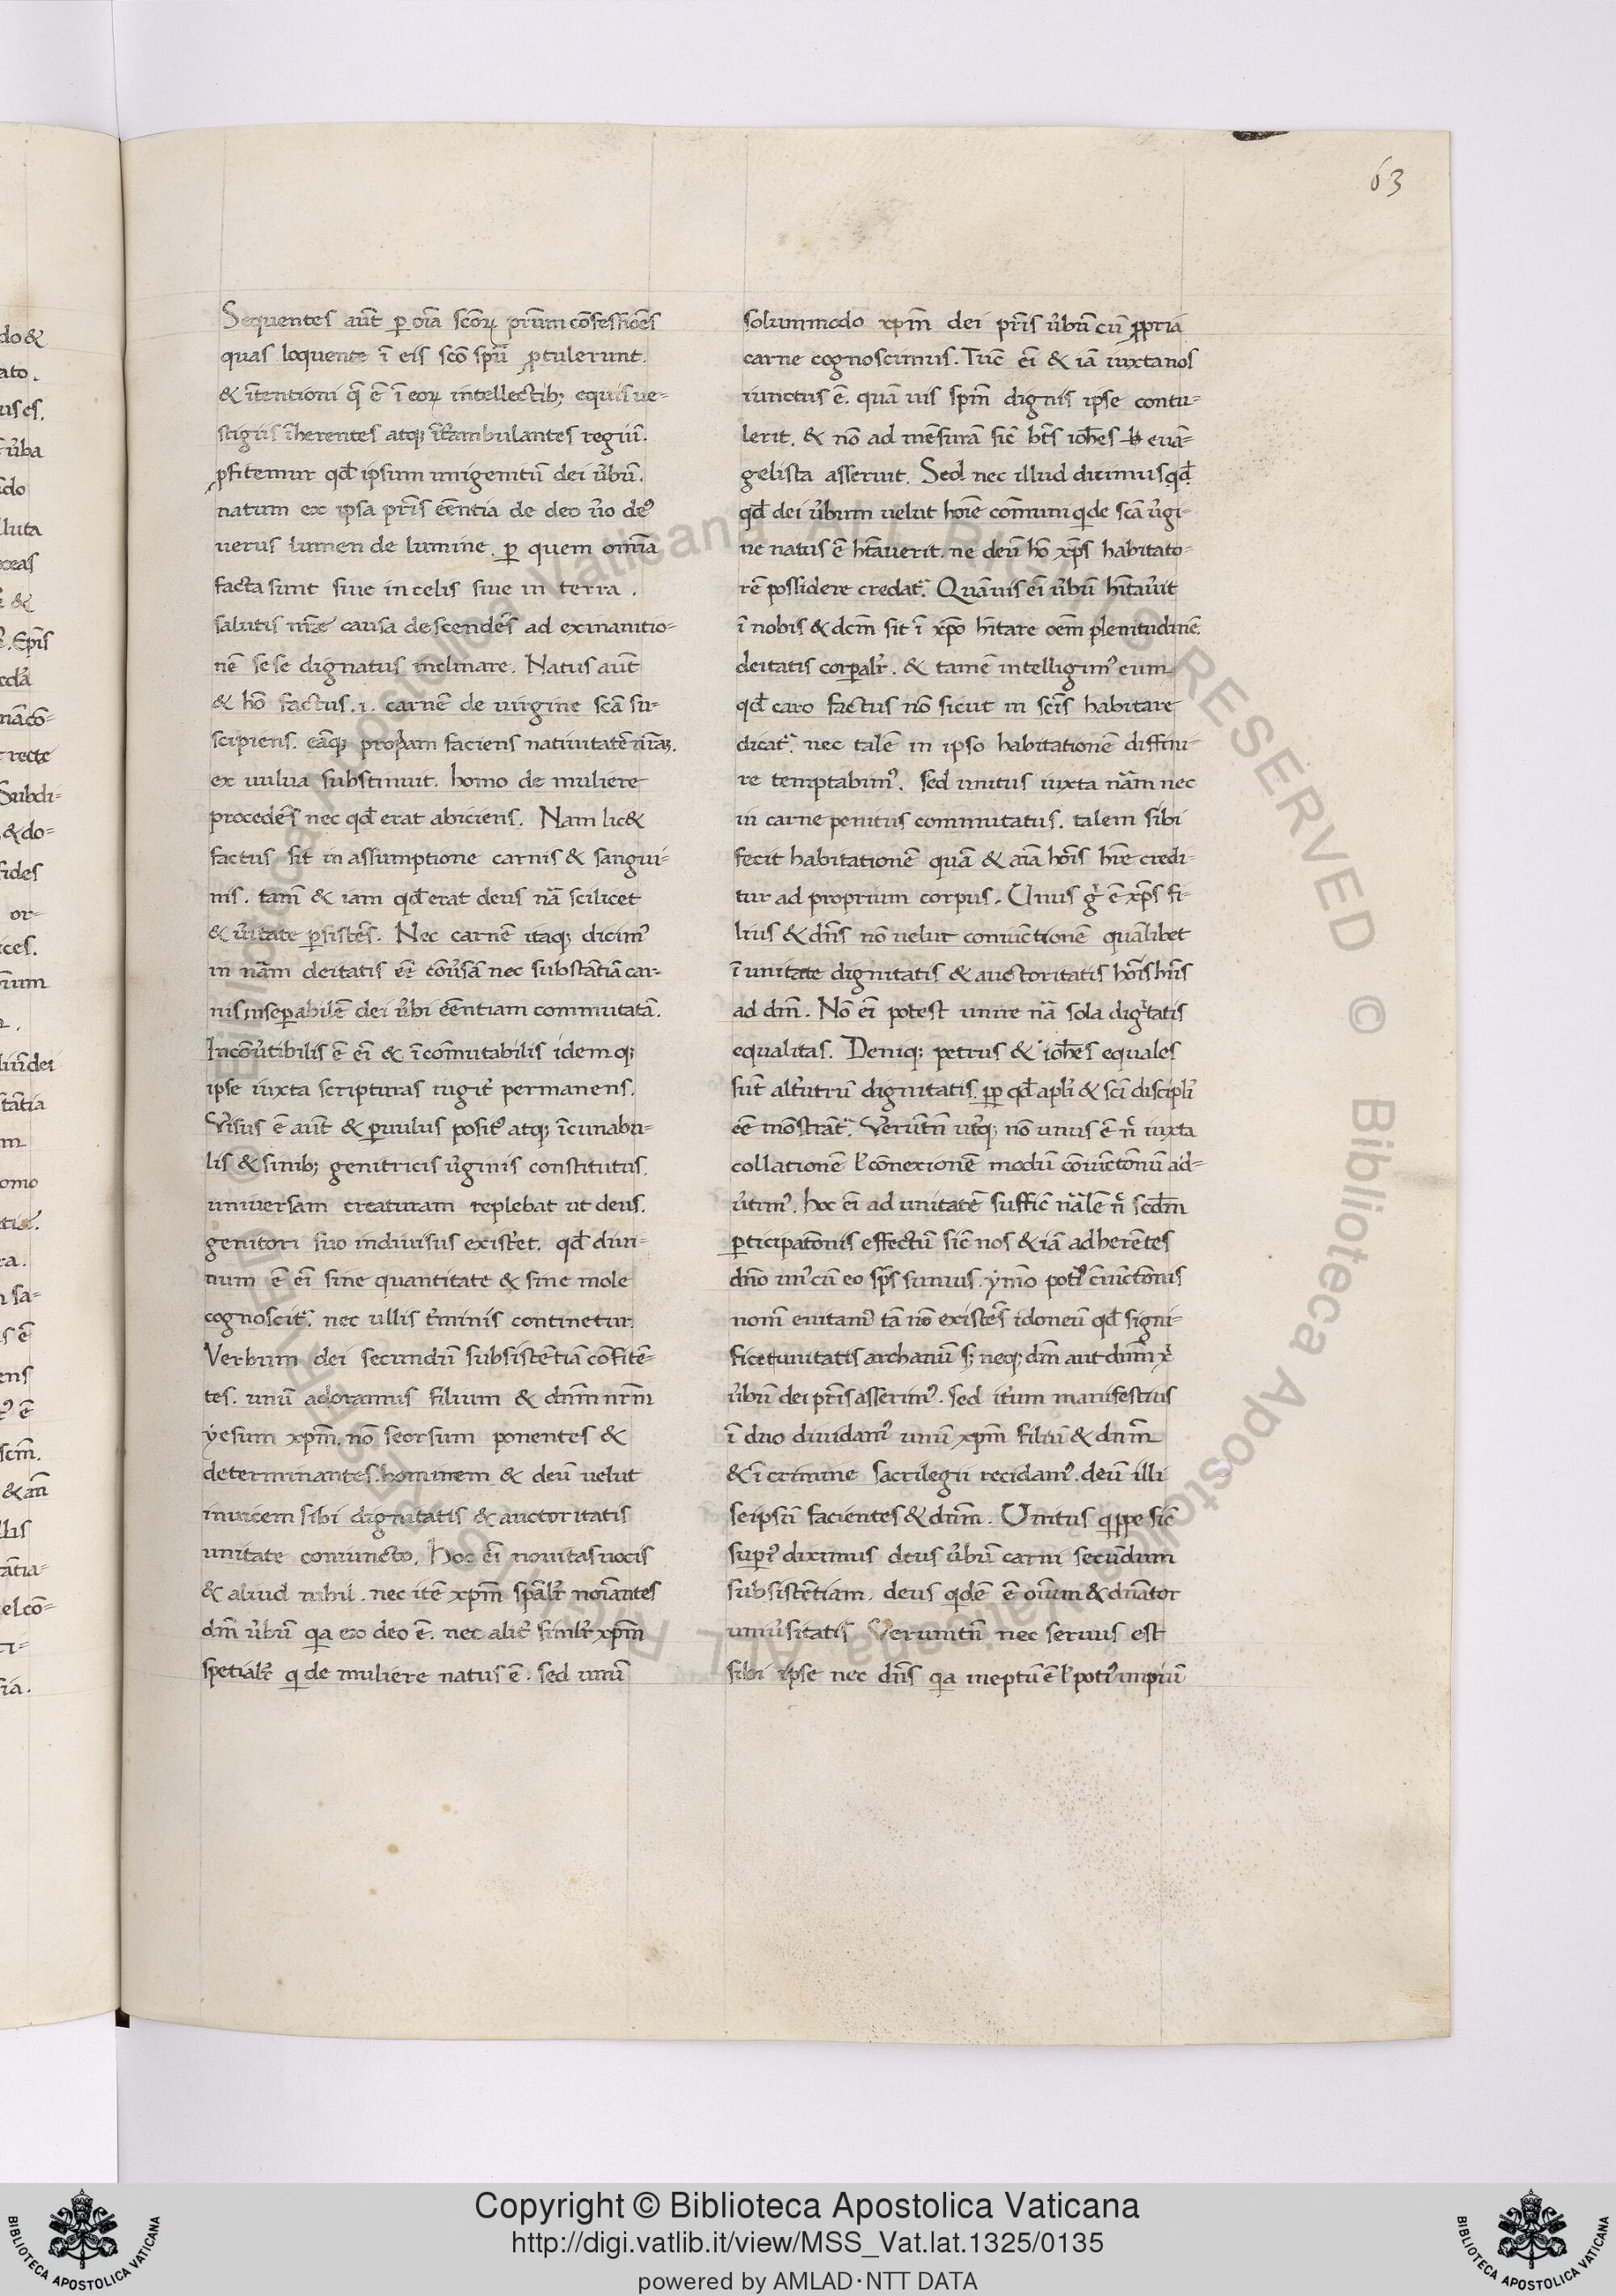 63
Sequentes aut̄ ꝑ oīa scōꝝ pr̄um cōfessiōes
quas loquente ī eis scō spū ꝓtulerunt.
& ītentioni q̄ ē ī eoꝝ intellectib; equis ue-
stigiis īherentes atq; ītambulantes regiū.
ꝓfitemur qđ ipsum unigenitū dei ūbū.
natum ex ipsa pr̄is eēntia de deo ūo deꝰ
uerus lumen de lumine. ꝑ quem omīa
facta sunt siue in celis siue in terra.
salutis nr̄ae causa descendēs ad exinanitio-
nē sese dignatus inclinare. Natus aut̄
& hō factus .i. carnē de uirgine scā su-
scipiens. eāq; propriam faciens natiuitatē nr̄aꝫ.
ex uulua substinuit. homo de muliere
procedēs nec qđ erat abiciens. Nam lic&
factus sit in assumptione carnis & sangui-
nis. tam̄ & iam qđ erat deus nā scilicet
& ūitate ꝑsistēs. Nec carnē itaq; dicimꝰ
in nām deitatis eē cōūsā nec substātiā car-
nis inseꝑabilē dei ūbi eēntiam commutatā.
Incōūtibilis ē eī & īcōmutabilis idemq;
ipse iuxta scripturas iugit̄ permanens.
Ūisus ē aut̄ & ꝑuulus positꝰ atq; īcunabu-
lis & sinib; genitricis ūginis constitutus.
uniuersam creaturam replebat ut deus.
genitori suo indiuisus exist̄et. qđ diui-
num ē eī sine quantitate & sine mole
cognoscit᷑. nec ullis t̄minis continetur.
Verbum dei secundū subsistētiā cōfitē-
tes. unū adoramus filium & dnm̄ nrm̄
yesum xpm̄. nō seorsum ponentes &
determinantes hominem & deū uelut
inuicem sibi dignitatis & auctoritatis
unitate coniuncto. Hoc eī nouitas uocis
& aliud nihil. nec itē xpm̄ spālr̄ noīantes
dm̄ ūbū qa exo deo ē. nec alit̄ simlr̄ xpm̄
spetialr̄ q de muliere natus ē. sed unū
solummodo xpm̄ dei pr̄is ūbū cū ꝓpria
carne cognoscimus. Tūc eī & iā iuxta nos
iunctus ē. quā uis spm̄ dignis ipse contu-
lerit. & nō ad mēsurā sic̄ bt̄s ioh̄es euā-
gelista asserit. Sed nec illud dicimus qđ
qđ dei ūbum uelut hoīe cōmuni q de scā ūgi-
ne natus ē hītauerit. ne deū hō xp̄s habitato-
rē possidere credat᷑. Quāuis eī ūbū hītauit
ī nobis & dcm̄ sit ī xpō hītare oēm plenitudinē.
deitatis corꝑalr̄. & tamē intelligimꝰ eum
qđ caro factus nō sicut in scīs habitare
dicat᷑. nec talē in ipso habitationē diffini-
re temptabimꝰ. sed unitus iuxta nām nec
in carne penitus commutatus. talem sibi
fecit habitationē quā & aīa hoīs hr̄e credi-
tur ad proprium corpus. Unus g̊ ē xp̄s fi-
lius & dn̄s nō uelut coniūctionē quālibet
ī unitate dignitatis & auctoritatis hoīs hn̄s
ad dm̄. Nō eī potest unire nā sola digītatis
equalitas. Deniq; petrus & ioh̄es equales
sūt alt̄utrū dignitatis. ꝓp qđ apl̄i & scī discipl̄i
eē mōstrāt᷑. Verūtn̄ ut̄q; nō unus ē n̄ iuxta
collationē l' cōnexionē modū cōiūctōnū ad-
ūtimꝰ. hoc eī ad unitatē suffic̄ nālē n̄ scđm
ꝑticipatōnis effectū sic̄ nos & iā adherētes
dn̄o un̄ cū eo sp̄s sumus. ymo potiꝰ cōiūctōnis
nom̄ euitamꝰ tā nō existēs idoneū qđ signi-
ficet unitatis archanū s; neq; dm̄ aut dnm̄ xp̄i
ūbū dei pr̄is asserimꝰ. sed it̄um manifestius
ī duo diuidamꝰ unū xpm̄ filiū & dnm̄
& ī crimine sacrilegii recidamꝰ. deū illi
seipsū facientes & dnm̄. Unitus q̄ppe sic̄
superiꝰ diximus deus ūbū carni secundum
subsistētiam. deus qdē ē oīum & dn̄ator
uniūsitatis Veruntn̄ nec seruus est
sibi ipse nec dn̄s qa ineptū ē l' potiꝰ impiū
do&
ato.
uses.
ūba
luta
Epīs
recte
Subdi-
&do-
fides
or-
omo
sa-
Copyright © Biblioteca Apostolica Vaticana
http://digi.vatlib.it/view/MSS_Vat.lat.1325/0135
powered by AMLAD·NTT DATA
BIBLIOTECA APOSTOLICA VATICANA
BIBLIOTECA APOSTOLICA VATICANA